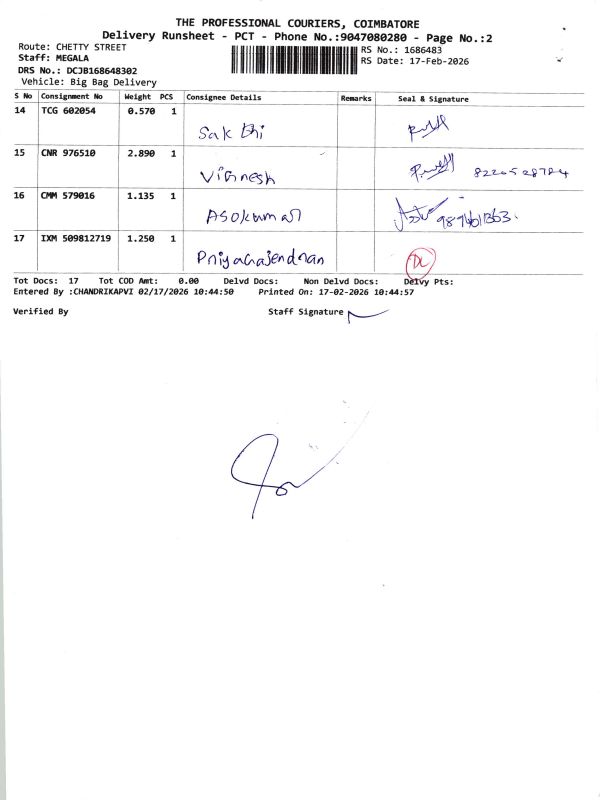 THE PROFESSIONAL COURIERS, COIMBATORE
Delivery Runsheet - PCT - Phone No.:9047080280 - Page No.:2
Route: CHETTY STREET
Staff: MEGALA
DRS No.: DCJB168648302
Vehicle: Big Bag Delivery
RS No.: 1686483
RS Date: 17-Feb-2026
S No Consignment No Weight PCS Consignee Details Remarks Seal & Signature
14 TCG 602054 0.570 1
Sakthi
15 CNR 976510 2.890 1
Vignesh 8220528784
16 CMM 579016 1.135 1
Asokumar
17 IXM 509812719 1.250 1
Priyagajendran DL
Tot Docs: 17 Tot COD Amt: 0.00 Delvd Docs: Non Delvd Docs: Delvy Pts:
Entered By :CHANDRIKAPVI 02/17/2026 10:44:50 Printed On: 17-02-2026 10:44:57
Verified By Staff Signature